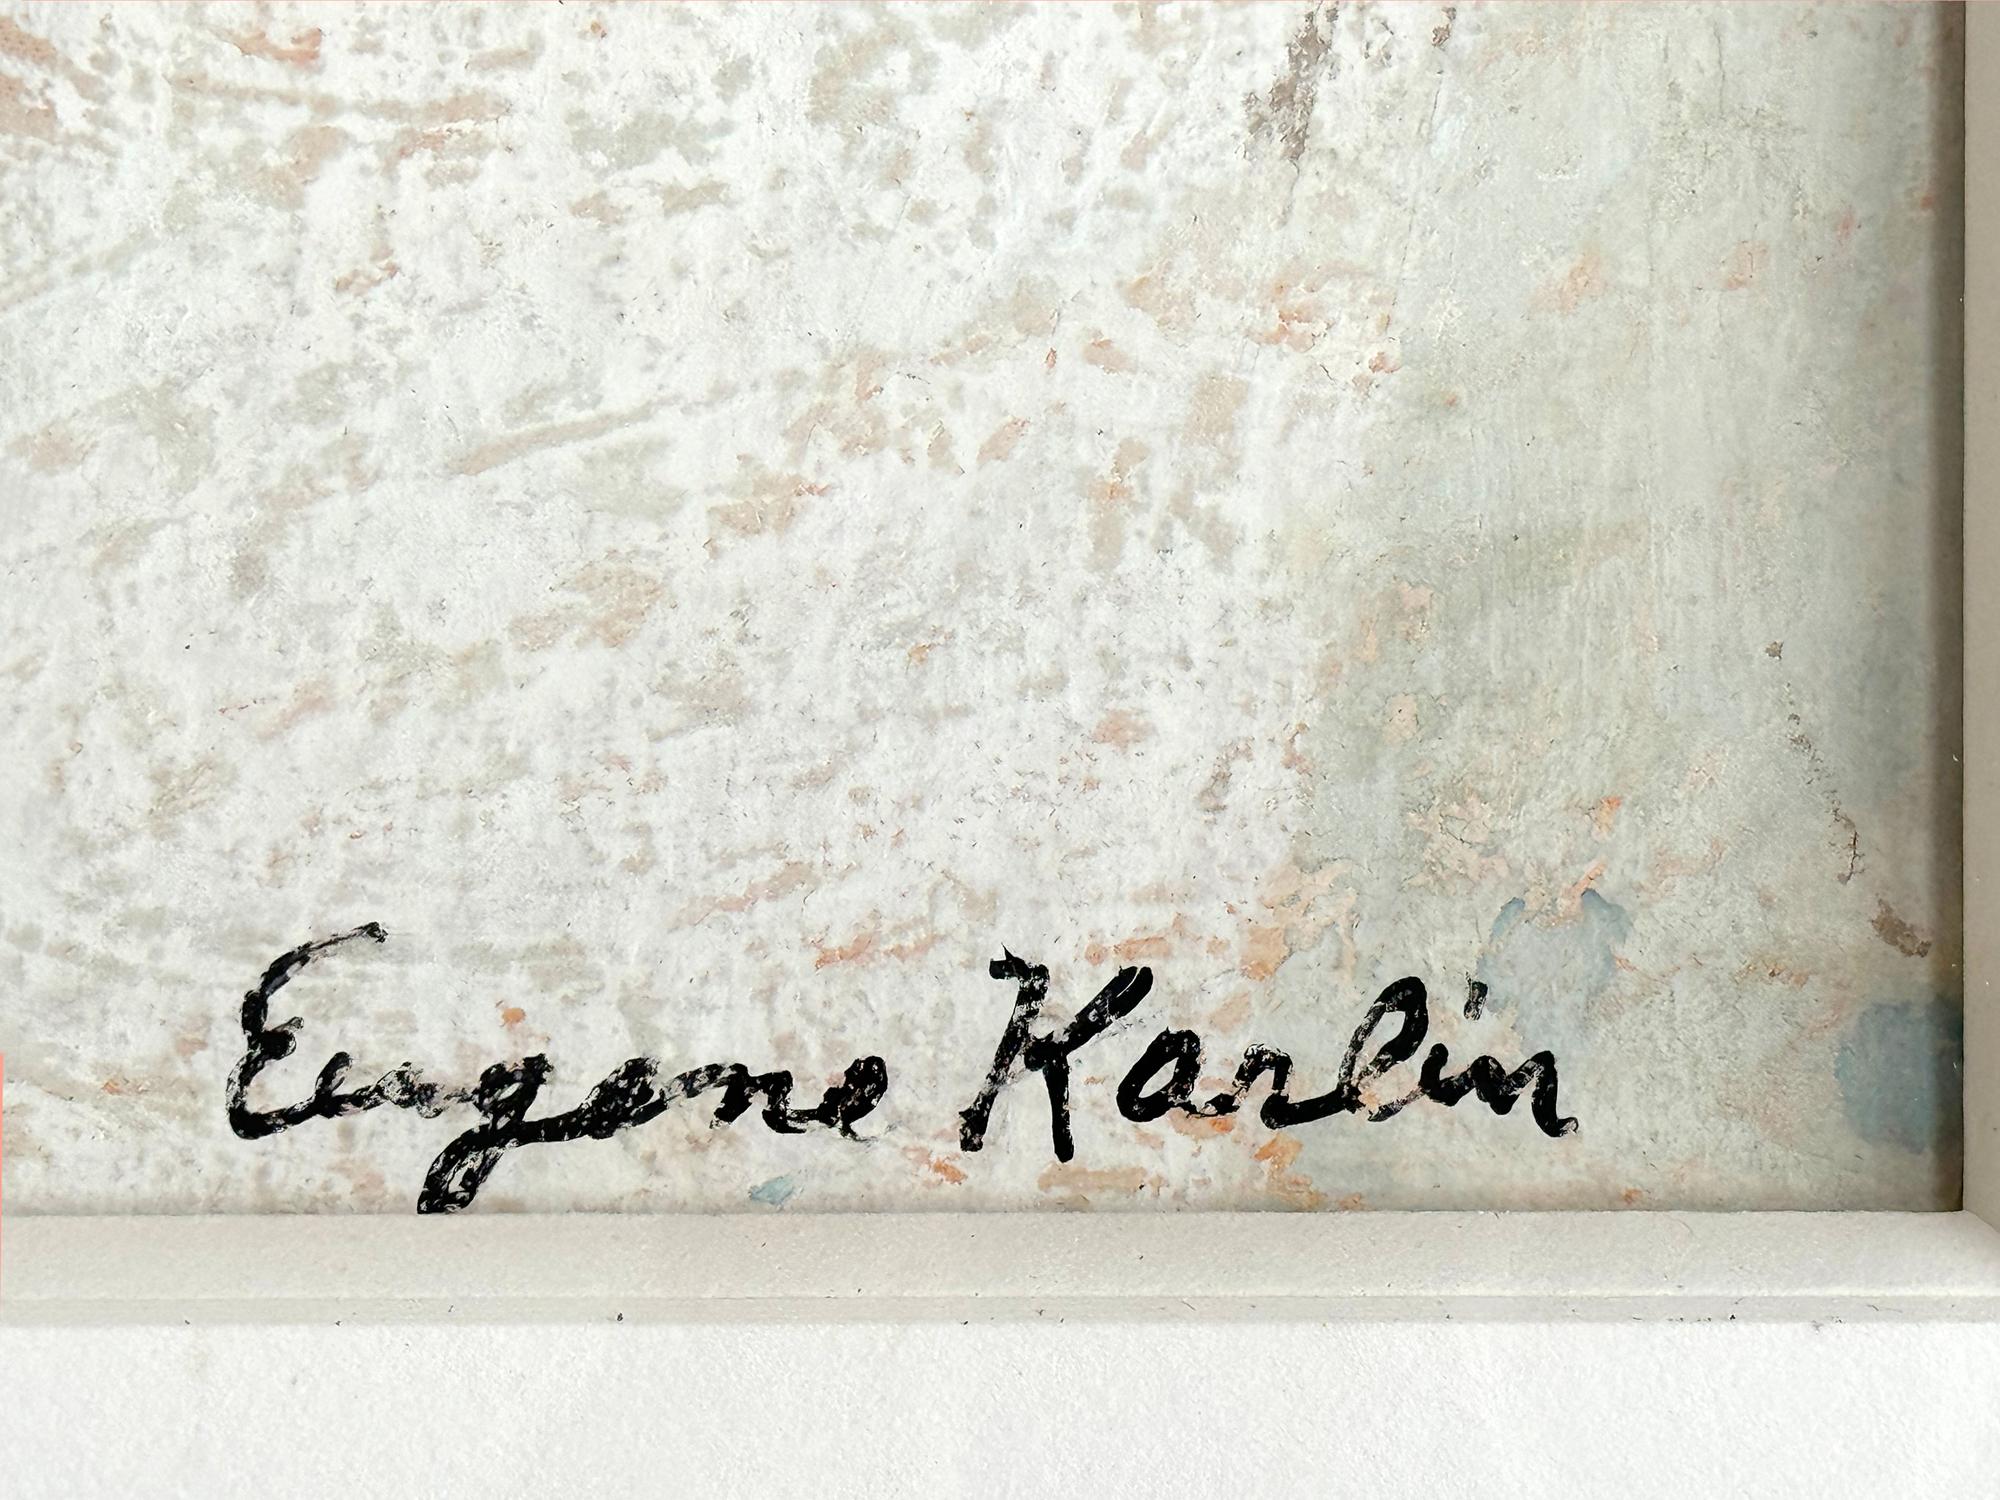 Eugene Karlin